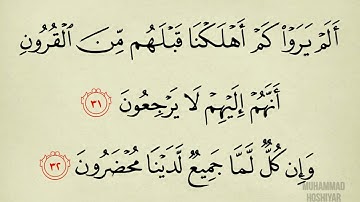 أَلَمۡ يَرَوۡاْ كَمۡ أَهۡلَكۡنَا قَبۡلَهُم مِّنَ ٱلۡقُرُونِ
أَنَّهُمۡ إِلَيۡهِمۡ لَا يَرۡجِعُونَ ٣١
وَإِن كُلّٞ لَّمَّا جَمِيعٞ لَّدَيۡنَا مُحۡضَرُونَ ٣٢
MUHAMMAD
HOSHIYAR